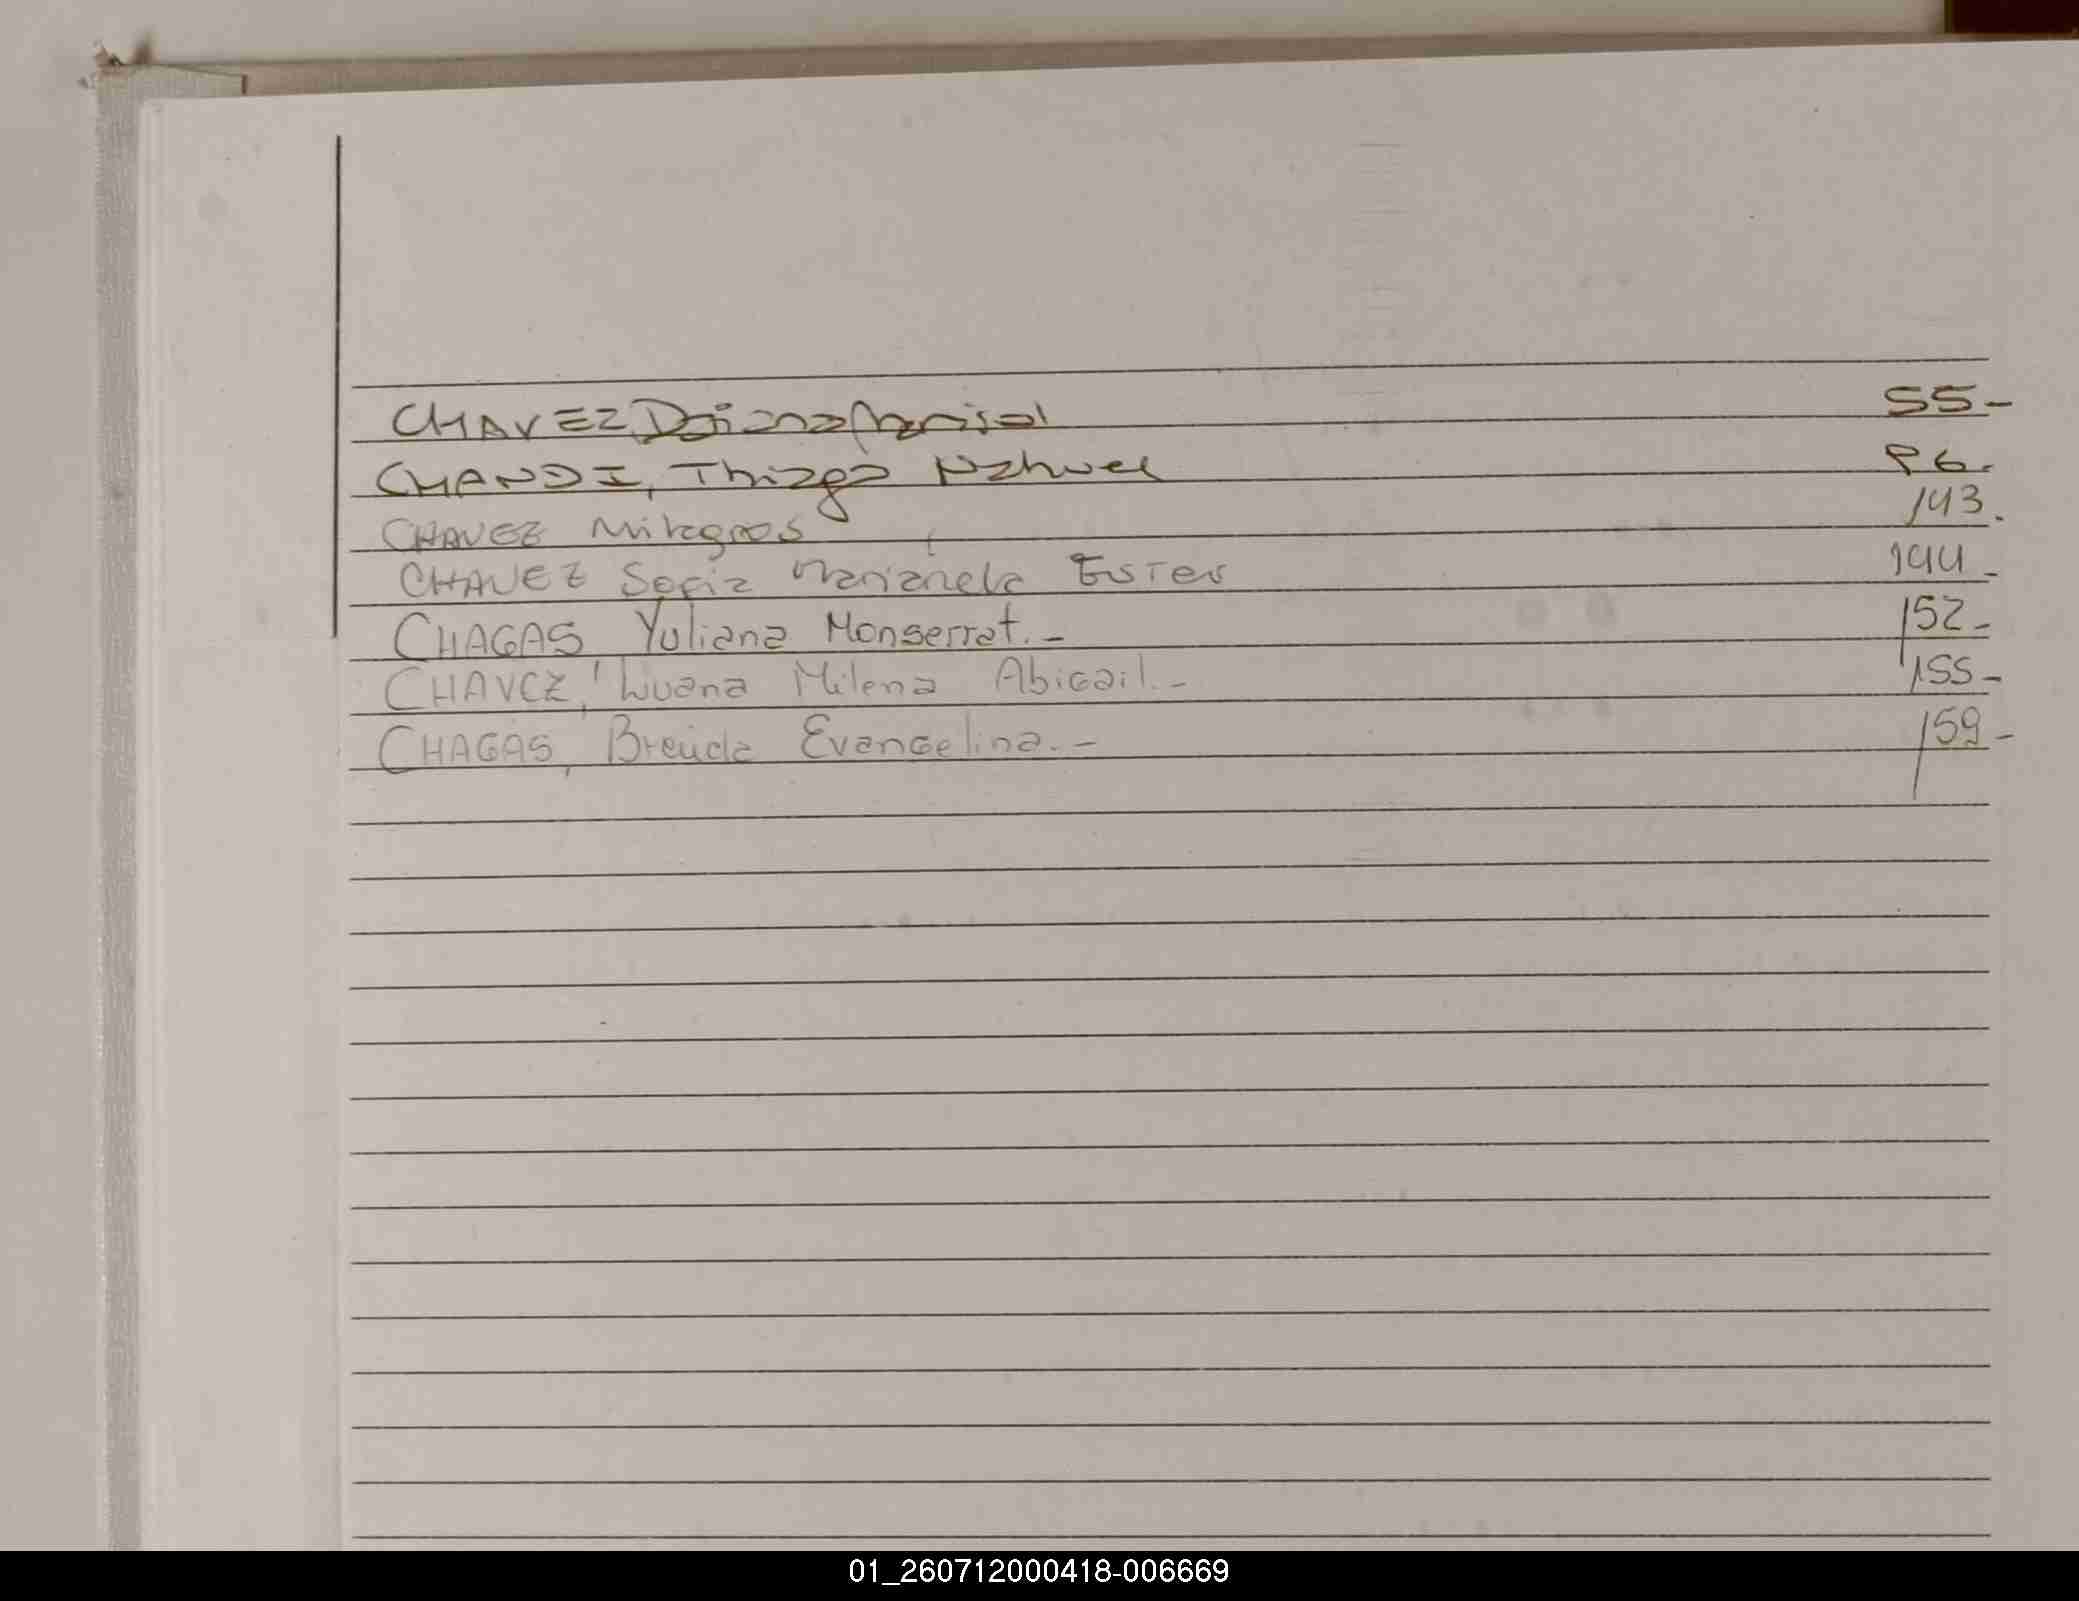 CHAVEZ, Daiana Marisol 55-
CHANDI, Thiago Nahuel 86.
CHAVEZ Milagros 143.
CHAVEZ Sofia Marianela Ester 144-
CHAGAS Yuliana Monserrat.- 152-
CHAVEZ, Luana Milena Abigail.- 155-
CHAGAS, Brenda Evangelina.- 159-
01_260712000418-006669